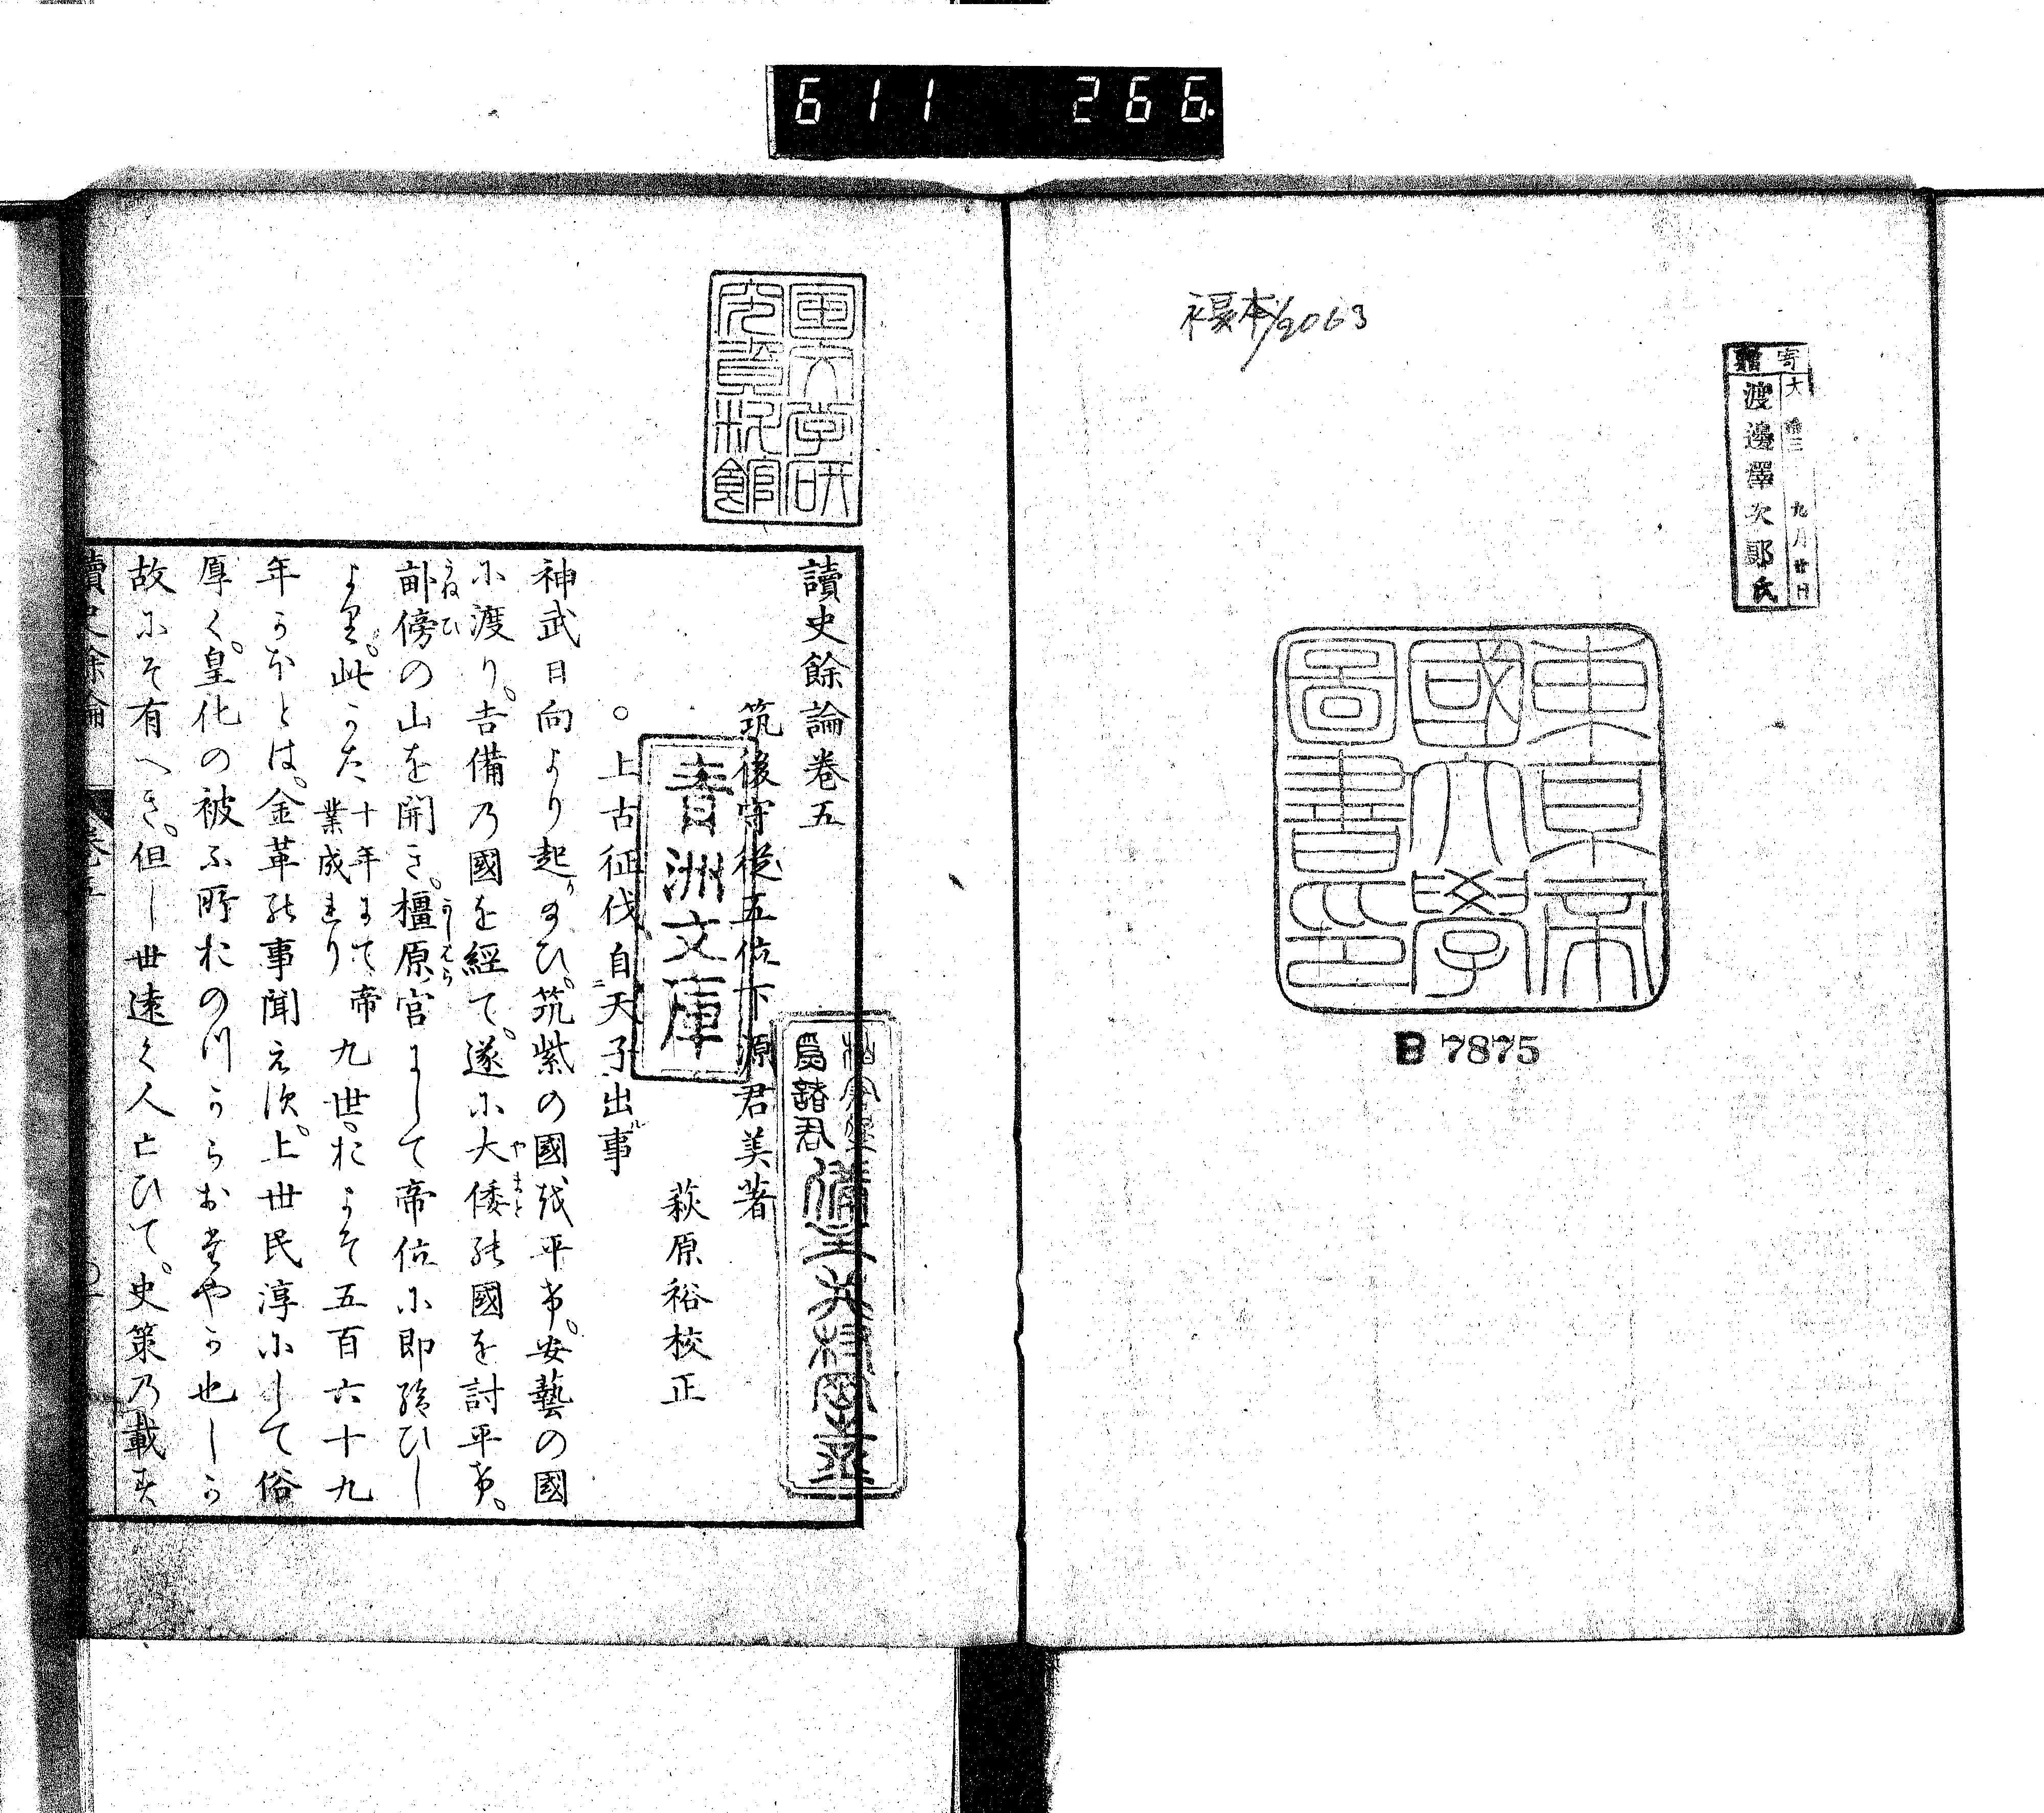 611 266.
寄贈
渡邊澤次郎氏
大 拾三 九月廿日
東京帝
國大學
圖書印
B 7875
国文学研
究資料館
青洲文庫
讀史餘論卷五
筑後守從五位下源君美著
萩原裕校正
○上古征伐自天子出事
神武日向より起り給ひ。筑紫の國を平け。安藝の國
に渡り。吉備乃國を經て。遂に大倭の國を討平け。
畝傍の山を開き。橿原宮にして帝位に即給ひし
より。此かた 十年まて帝業成れり 九世。およそ五百六十九
年かほとは。金革の事聞えす。上世民淳にして俗
厚く。皇化の被ふ所おのつからおたやか也しか
故にそ有へき。但し世遠く人亡ひて。史策乃載す
讀史餘論 卷五